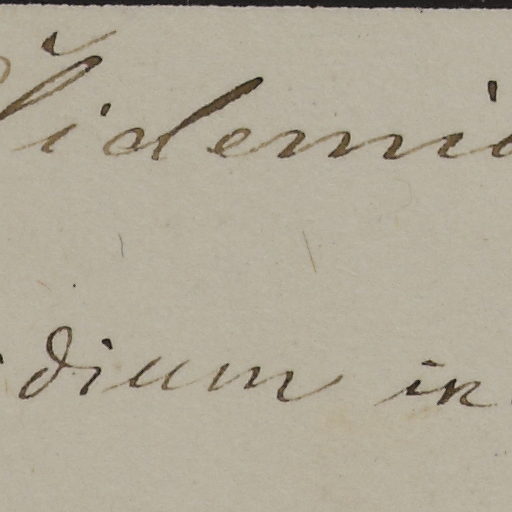 Židemi
dium in